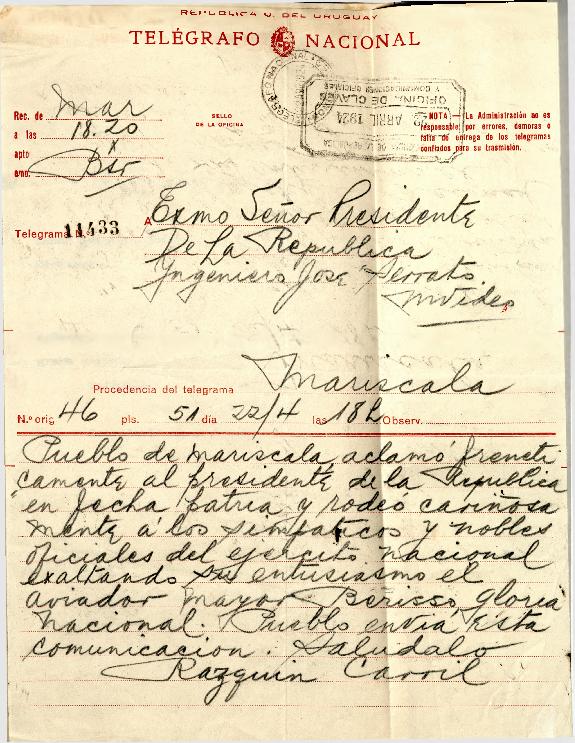 REPÚBLICA O. DEL URUGUAY
TELÉGRAFO NACIONAL
Rec. de Mar
a las 18.20
apto
emo.
SELLO
DE LA OFICINA
OFICINA DE CLAVE
Y COMUNICACIONES OFICIALES
22 ABRIL 1924
NOTA — La Administración no es
responsable por errores, demoras o
falta de entrega de los telegramas
confiados para su trasmisión.
Telegrama N.º 11433
A Exmo Señor Presidente
De La Republica
Ingeniero Jose Serrato
Mvideo
Procedencia del telegrama Mariscala
N.º orig 46 pls. 51 día 22/4 las 18h Observ.
Pueblo de Mariscala aclamó freneti
camente al presidente de la Republica
en fecha patria y rodeó cariñosa
mente á los simpaticos y nobles
oficiales del ejercito nacional
exaltando su entusiasmo el
aviador Mayor Berisso, gloria
nacional. Pueblo envia esta
comunicacion. Saludalo
Razquin Carril